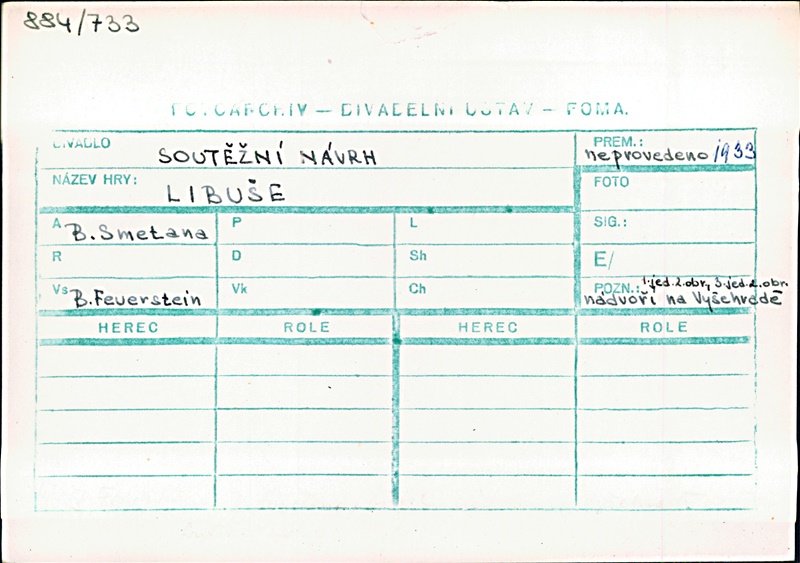 884/733
FOTOARCHIV — DIVADELNÍ ÚSTAV — FOMA.
DIVADLO SOUTĚŽNÍ NÁVRH
PREM.: neprovedeno 1933
NÁZEV HRY: LIBUŠE
FOTO
A B.Smetana P L SIG.:
R D Sh E/
Vs B.Feuerstein Vk Ch POZN.: 1.jed.2.obr, 3.jed.2.obr.
nádvoří na Vyšehradě
HEREC ROLE HEREC ROLE